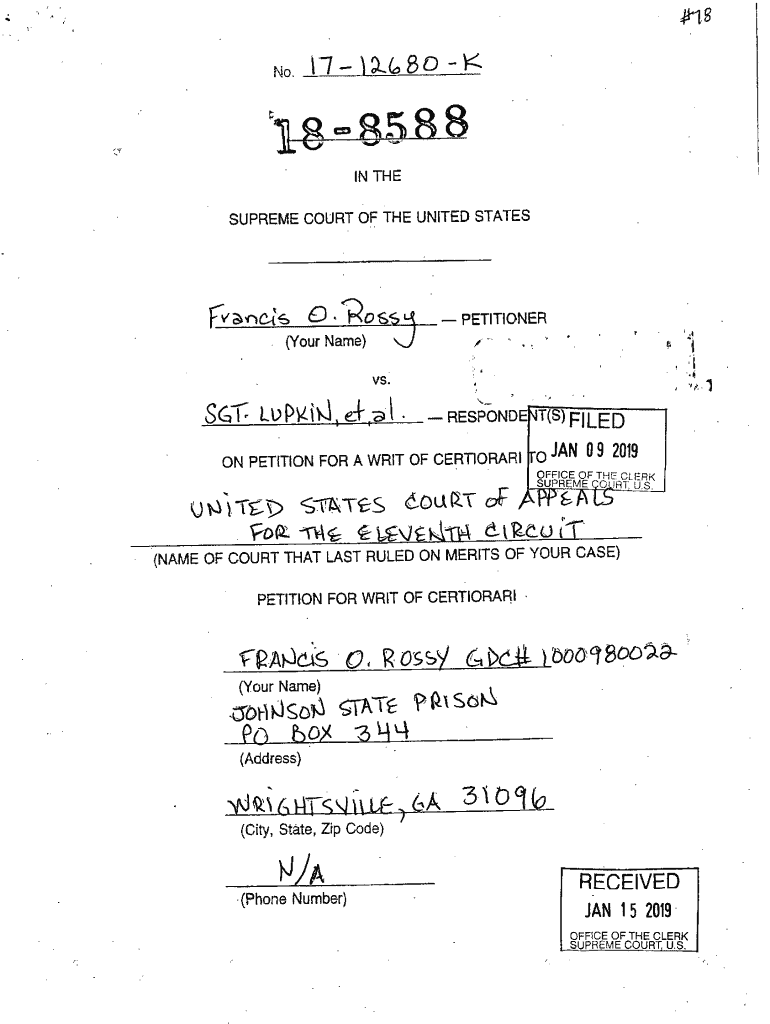 #18
No. 17-12680-K
18-8588
IN THE
SUPREME COURT OF THE UNITED STATES
Francis O. Rossy — PETITIONER
(Your Name)
vs.
SGT. LUPKIN, et, al. — RESPONDENT(S)
FILED
JAN 09 2019
OFFICE OF THE CLERK
SUPREME COURT, U.S.
ON PETITION FOR A WRIT OF CERTIORARI TO
UNITED STATES COURT OF APPEALS
FOR THE ELEVENTH CIRCUIT
(NAME OF COURT THAT LAST RULED ON MERITS OF YOUR CASE)
PETITION FOR WRIT OF CERTIORARI
FRANCIS O. ROSSY GDC# 1000980022
(Your Name)
JOHNSON STATE PRISON
PO BOX 344
(Address)
WRIGHTSVILLE, GA 31096
(City, State, Zip Code)
N/A
(Phone Number)
RECEIVED
JAN 15 2019
OFFICE OF THE CLERK
SUPREME COURT, U.S.